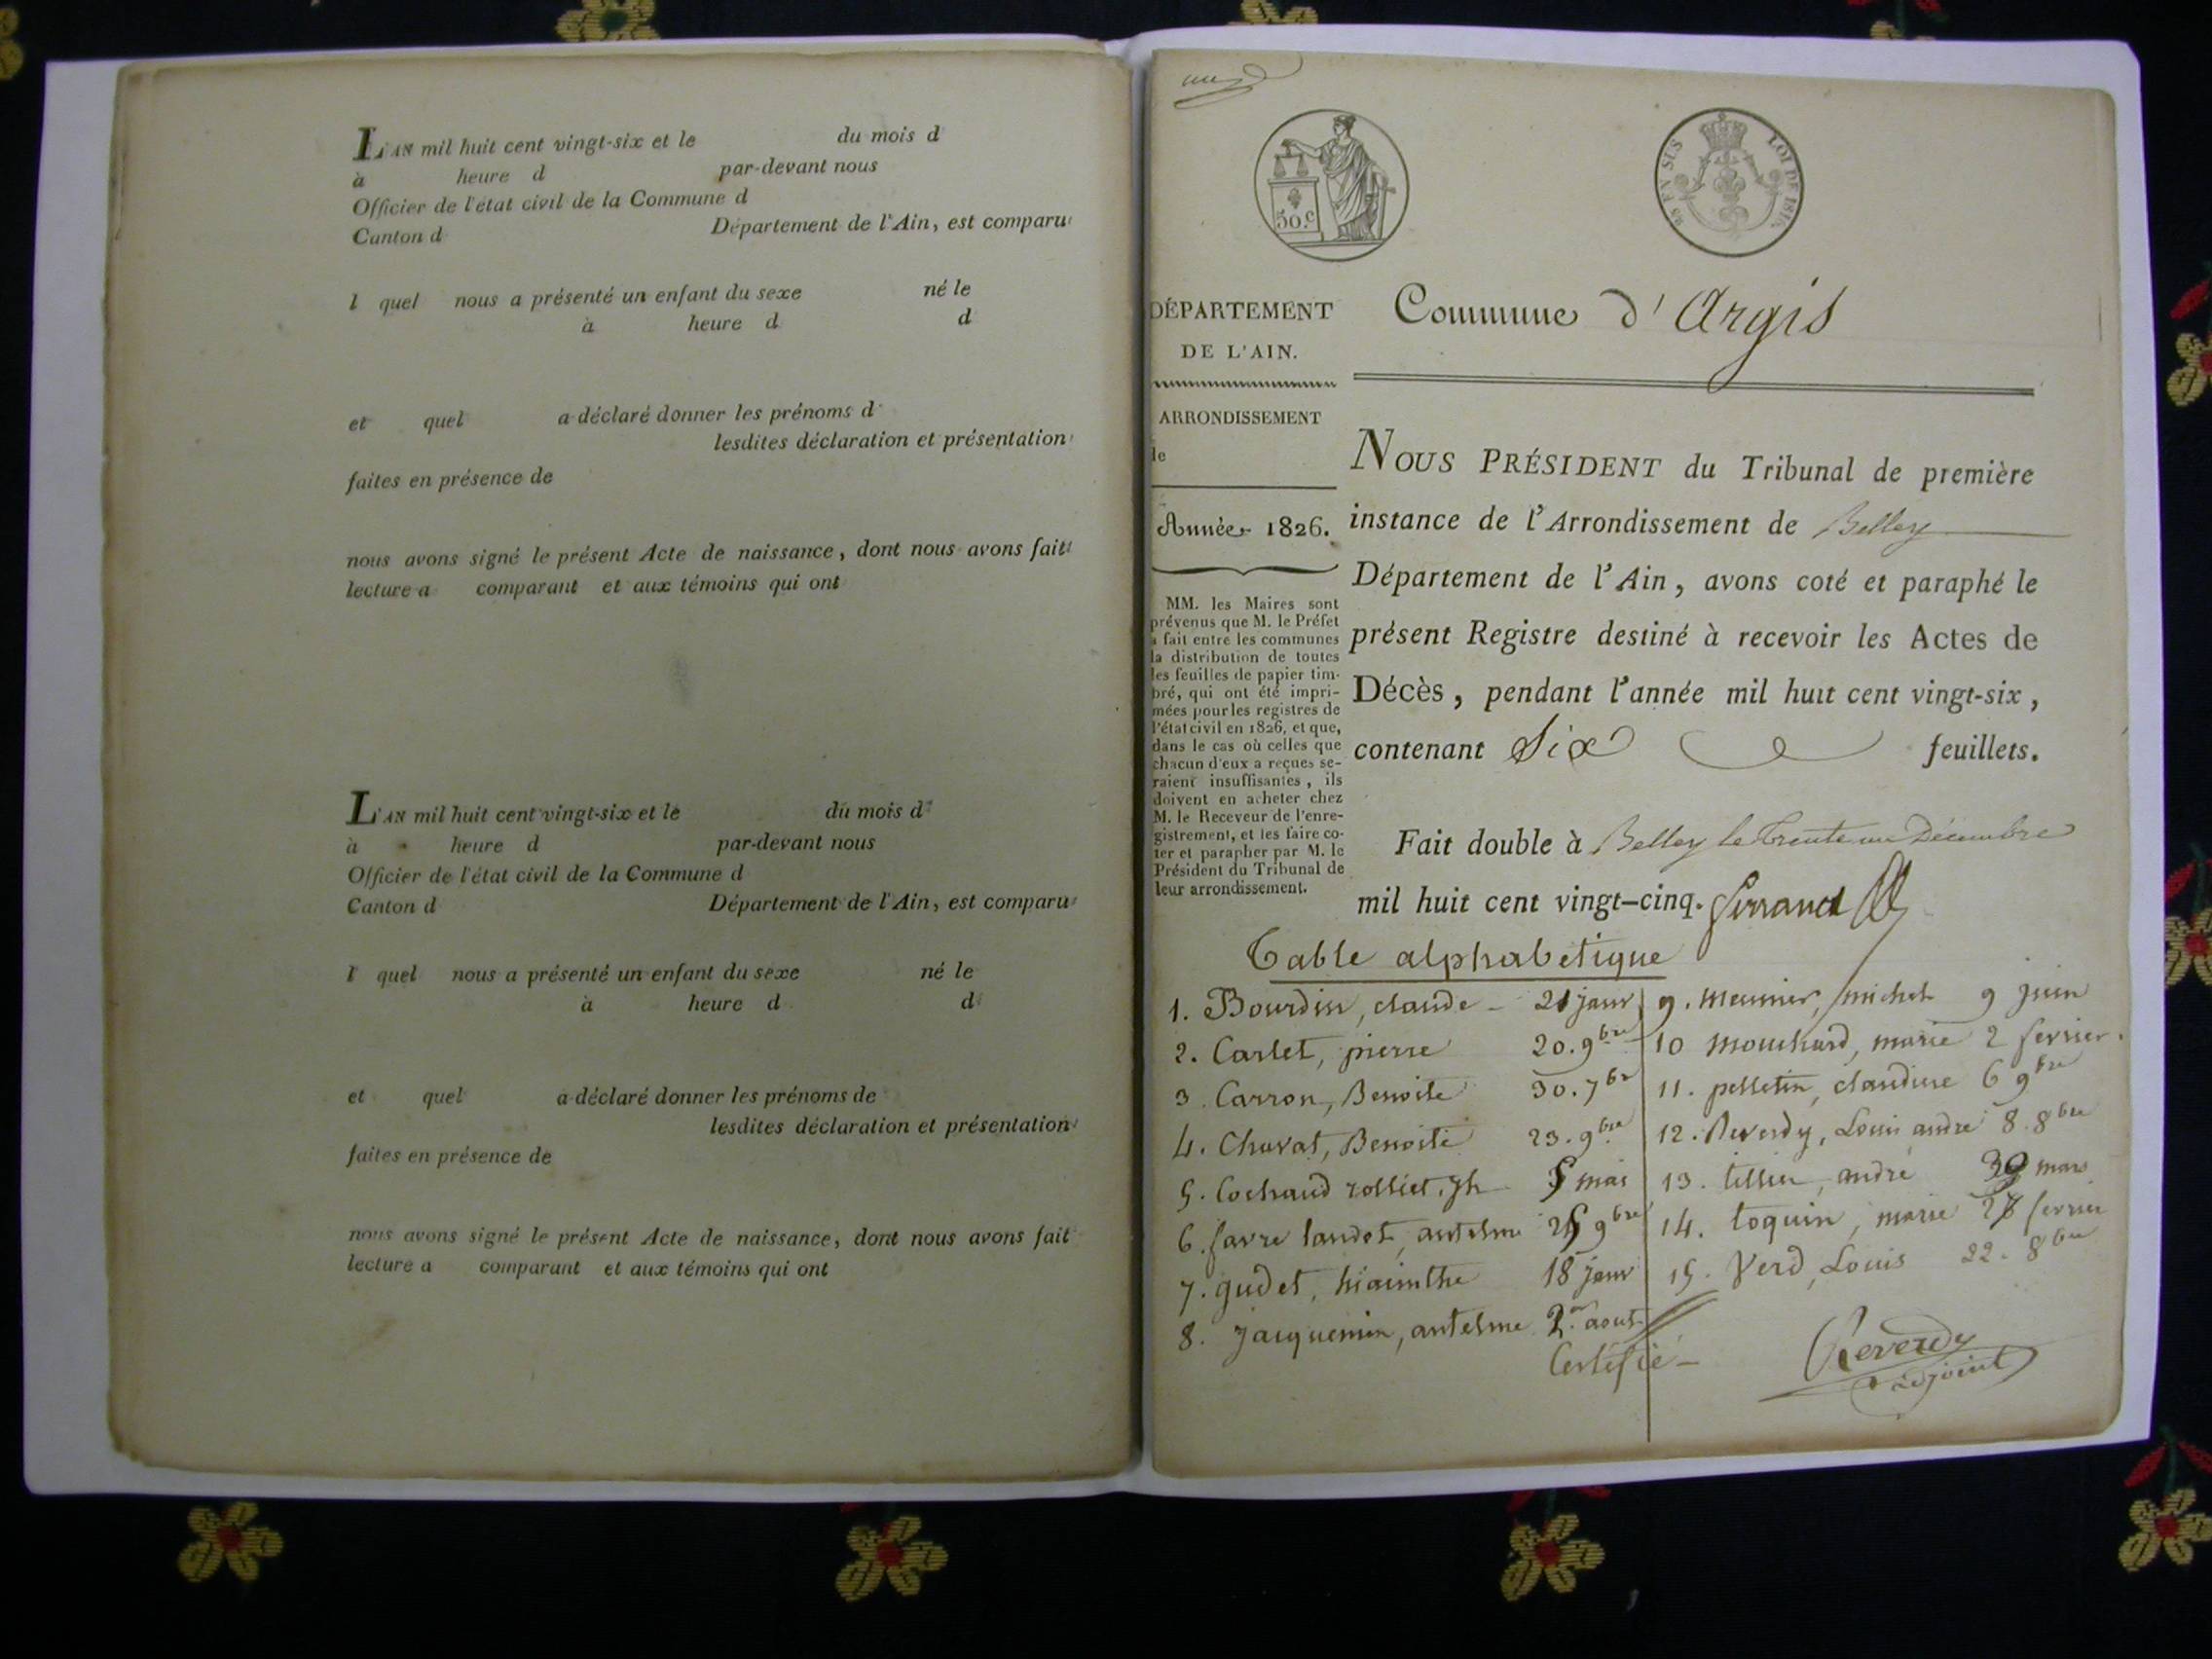 L'AN mil huit cent vingt-six et le du mois d
à heure d par-devant nous
Officier de l'état civil de la Commune d
Canton d Département de l'Ain, est comparu
l quel nous a présenté un enfant du sexe né le
à heure d d
et quel a déclaré donner les prénoms d
lesdites déclaration et présentation
faites en présence de
nous avons signé le présent Acte de naissance, dont nous avons fait
lecture a comparant et aux témoins qui ont
L'AN mil huit cent vingt-six et le du mois d
à heure d par-devant nous
Officier de l'état civil de la Commune d
Canton d Département de l'Ain, est comparu
l quel nous a présenté un enfant du sexe né le
à heure d d
et quel a déclaré donner les prénoms de
lesdites déclaration et présentation
faites en présence de
nous avons signé le présent Acte de naissance, dont nous avons fait
lecture a comparant et aux témoins qui ont
50.c
EN SUS LOI DE
DÉPARTEMENT
DE L'AIN.
ARRONDISSEMENT
de
Année 1826.
MM. les Maires sont
prévenus que M. le Préfet
a fait entre les communes
la distribution de toutes
les feuilles de papier tim-
bré, qui ont été impri-
mées pour les registres de
l'état civil en 1826, et que,
dans le cas où celles que
chacun d'eux a reçues se-
raient insuffisantes, ils
doivent en acheter chez
M. le Receveur de l'enre-
gistrement, et les faire co-
ter et parapher par M. le
Président du Tribunal de
leur arrondissement.
Commune d'Argis
NOUS PRÉSIDENT du Tribunal de première
instance de l'Arrondissement de Belley
Département de l'Ain, avons coté et paraphé le
présent Registre destiné à recevoir les Actes de
Décès, pendant l'année mil huit cent vingt-six,
contenant Six feuillets.
Fait double à Belley le trente un Décembre
mil huit cent vingt-cinq.
Table alphabetique
1. Bourdin, claude - 21 janv
2. Carlet, pierre 20. 9bre
3. Carron, Benoite 30. 7br
4. Charvat, Benoite 23. 9bre
5. Cochaud rolliet, jh 5 mai
6. favre landet, antelme 25 9bre
7. gudet, hiainthe 18 janv
8. Jacquemin, antelme 2 aout
9. meunier, michel 9 juin
10 mouchard, marie 2 fevrier.
11. pelletin, claudine 6 9bre
12. Reverdy, Louis andré 8. 8bre
13. tillier, andré mars
14. toquin, marie fevrier
15. Verd, Louis 22. 8bre
Certifié -
Reverdy
adjoint